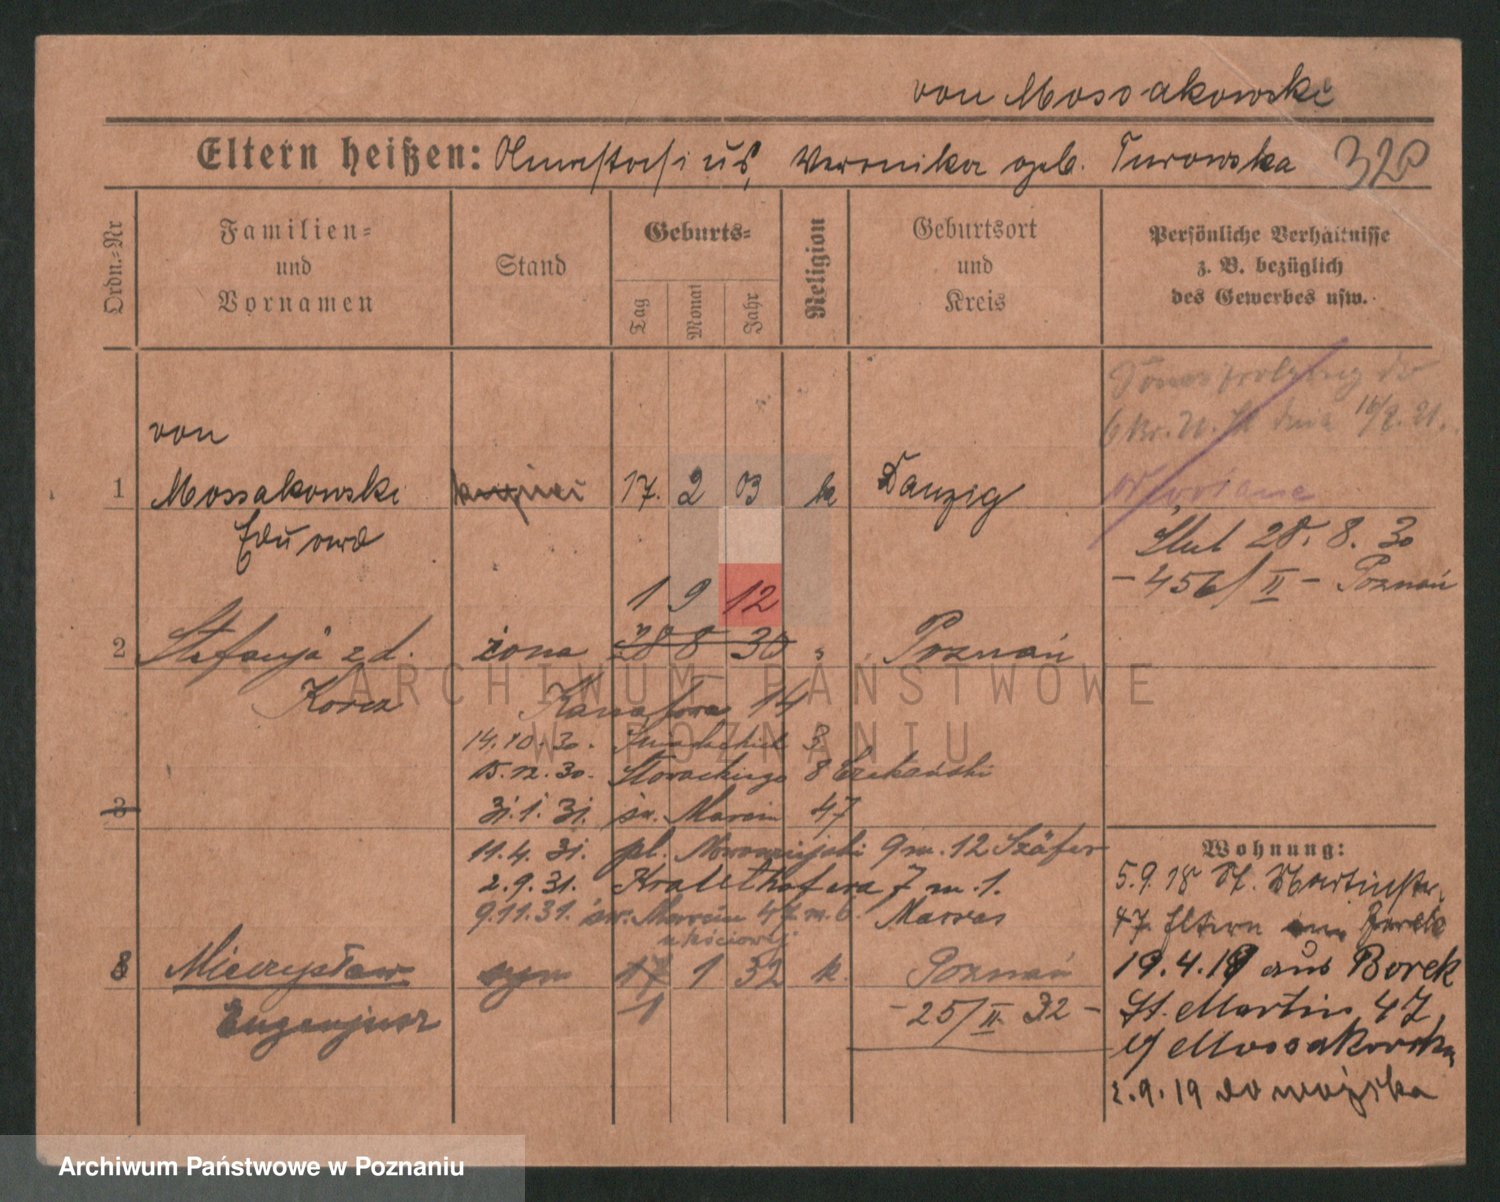 von Mossakowski
Eltern heißen: Anastasius, Veronika geb. Turowska 320
Ordn.=Nr
Familien=
und
Vornamen
Stand
Geburts=
Tag
Monat
Jahr
Religion
Geburtsort
und
Kreis
Persönliche Verhältnisse
z. B. bezüglich
des Gewerbes usw.
von
1 Mossakowski kupiec 17. 2 03 k Danzig
Eduard
Ślub 28. 8. 30
- 456/II - Poznań
1 9 12
2 Stefanja z d. żona 28 8 30 " Poznań
Korcz
14
14.10.30. 3
15.12.30. Słowackiego 8
3
31.1.31. św. Marcin 47
11.4.31. pl. Nowomiejski 9 m. 12 Szäfer
2.9.31. 7 m. 1.
9.11.31. św. Marcin 47 m. 6.
8 Mieczysław syn 17 1 32 k. Poznań
1
Eugenjusz
- 25/II 32 -
Wohnung:
5.9.18 St. Martinstr.
47 Eltern
19.4.19 aus Borek
St. Martin 47
b/ Mossakowska
2.9.19 do wojska
ARCHIWUM PAŃSTWOWE
W POZNANIU
Archiwum Państwowe w Poznaniu